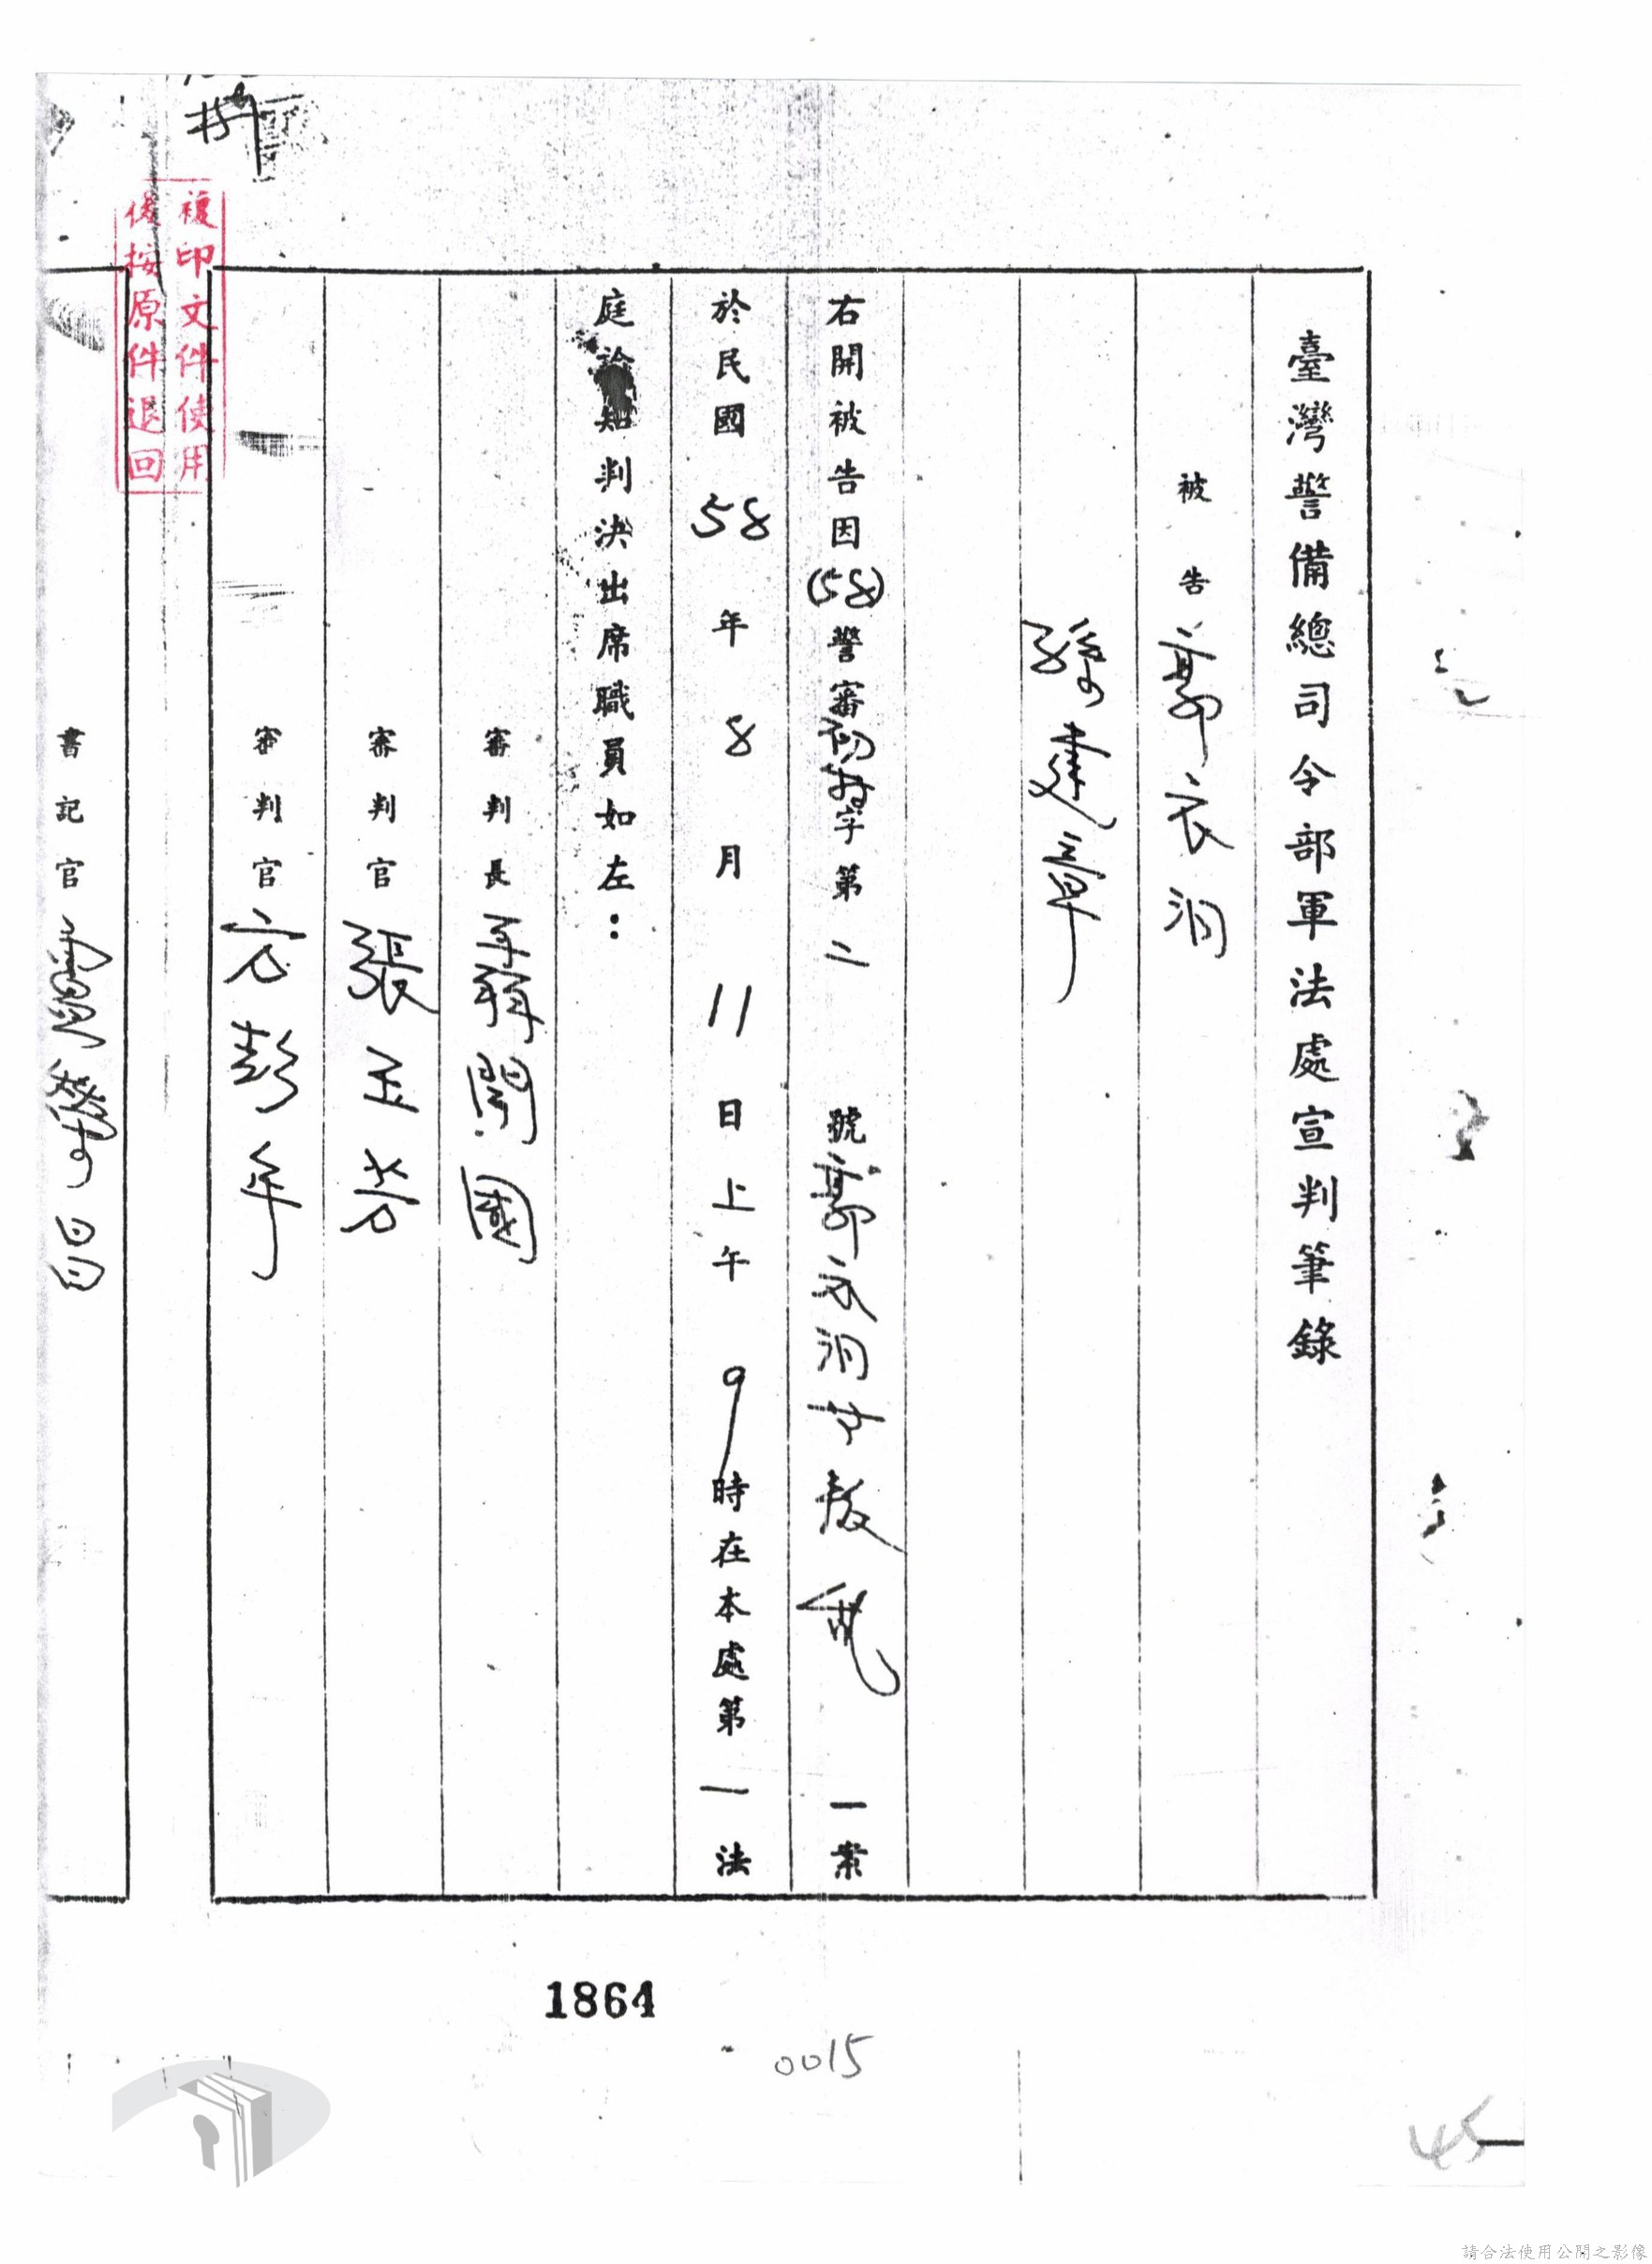 臺灣警備總司令部軍法處宣判筆錄
被告郭衣洞
孫建章
右開被告因(58)警審初特字第二號郭衣洞等叛亂一案
於民國58年8月11日上午9時在本處第一法
庭諭知判決出席職員如左：
審判長聶開國
審判官張玉芳
審判官方彭年
書記官昌
複印文件使用
後按原件退回
1864
0015
45
請合法使用公開之影像